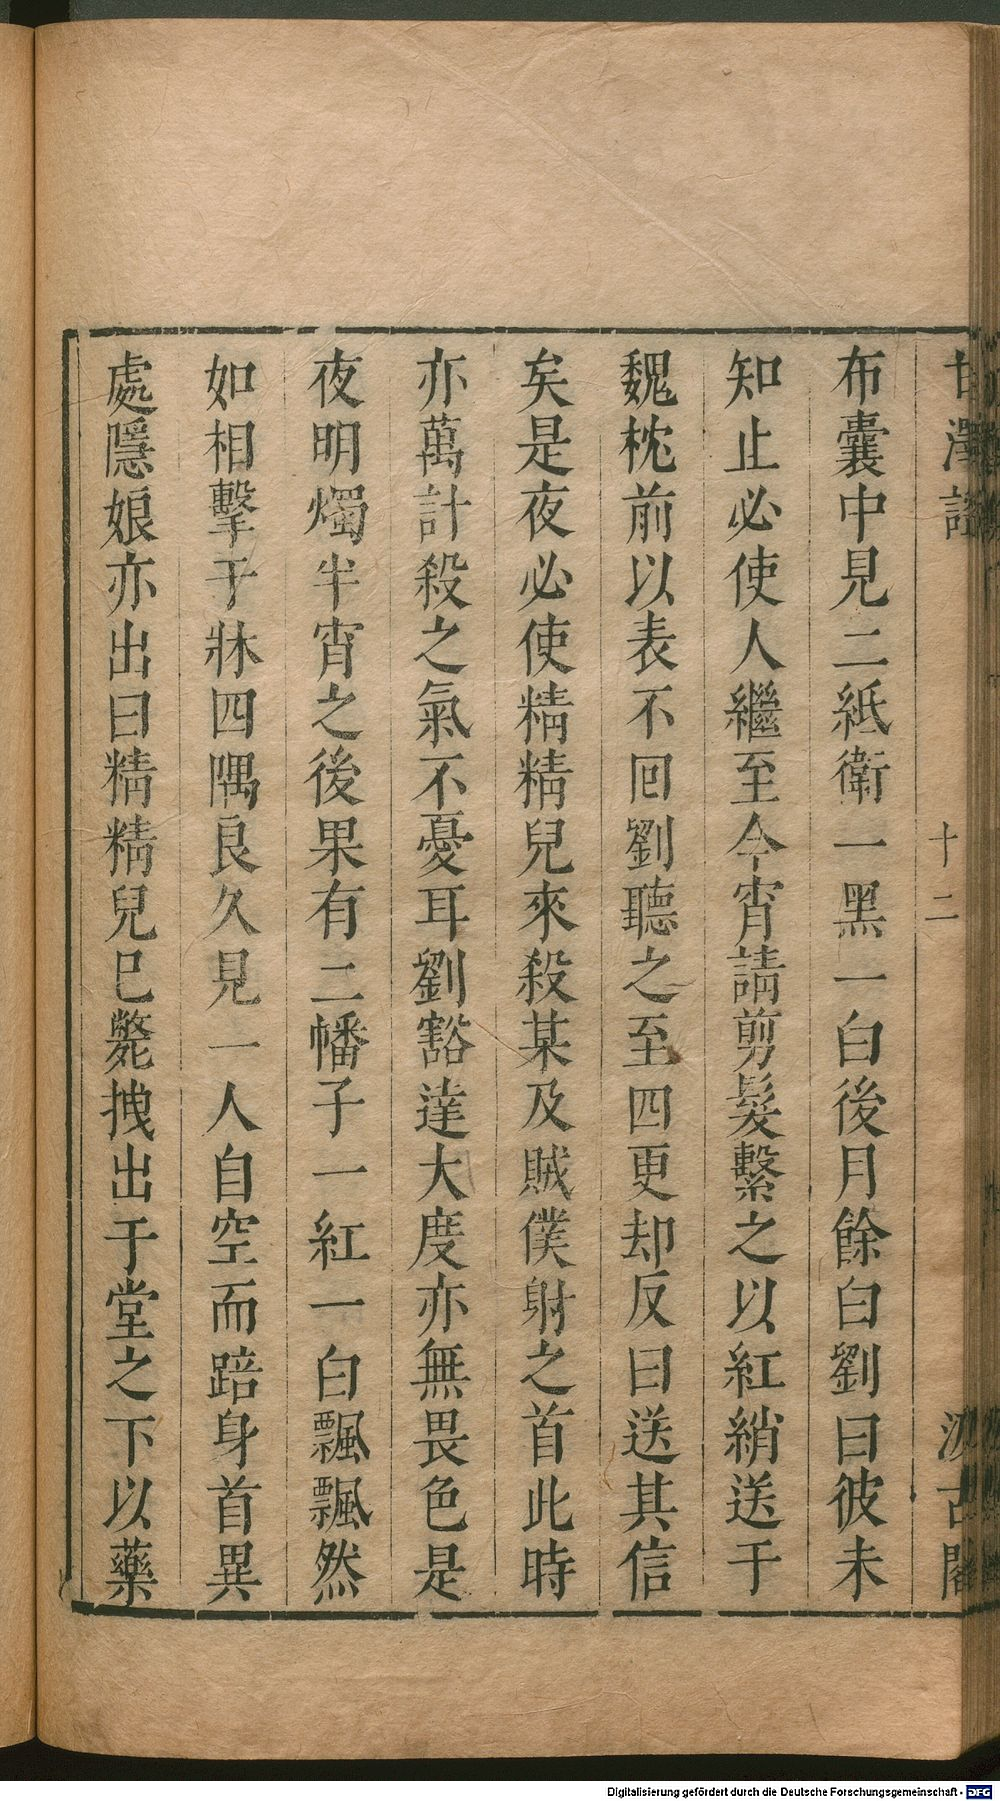 甘澤謠
十二
汲古閣
布囊中見二紙衛一黑一白後月餘白劉曰彼未
知止必使人繼至今宵請剪髮繫之以紅綃送于
魏枕前以表不囘劉聽之至四更却反曰送其信
矣是夜必使精精兒來殺某及賊僕射之首此時
亦萬計殺之氣不憂耳劉豁達大度亦無畏色是
夜明燭半宵之後果有二幡子一紅一白飄飄然
如相擊于牀四隅良久見一人自空而踣身首異
處隱娘亦出曰精精兒已斃拽出于堂之下以藥
Digitalisierung gefördert durch die Deutsche Forschungsgemeinschaft - DFG